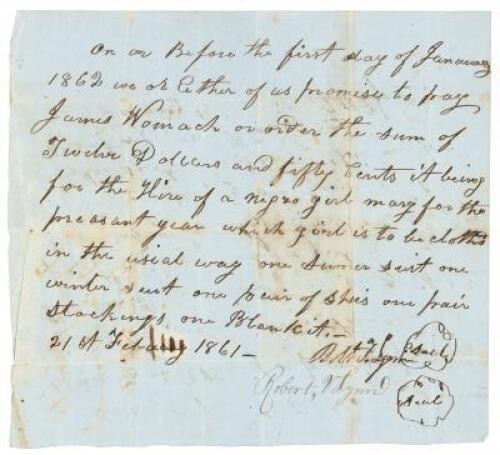 On or Before the first day of January
1862 we or Either of us promise to pay
James Womack or order the sum of
Twelve Dollars and fifty Cents it being
for the Hire of a negro girl mary for the
preasant year which girl is to be cloths
in the usial way one sumer suit one
winter suit one pair of shies one pair
stockings one Blankit.—
21 st 1861—
Seal
Robert
Seal